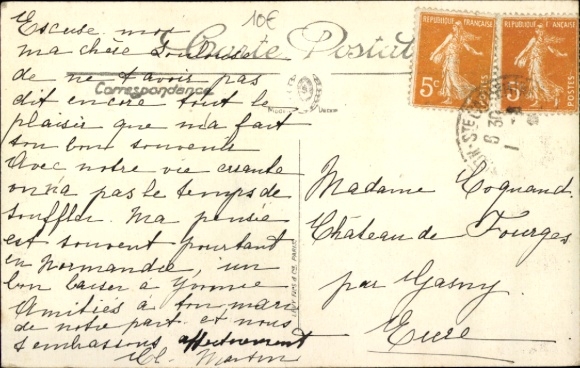 10€
Carte Postale
Correspondance
Excuse moi
ma chère
de ne t'avoir pas
dit encore tout le
plaisir que m'a fait
ton bon souvenir
Avec notre vie errante
on n'a pas le temps de
souffler. Ma pensée
est souvent pourtant
en Normandie, un
bon baiser à Yvonne
Amitiés à ton mari
de notre part. et nous
t'embrassons affectueusement
Cl. Martin
REPUBLIQUE FRANÇAISE
5c
POSTES
REPUBLIQUE FRANÇAISE
5c
POSTES
Madame Coquand
Château de Fourges
par Gasny
Eure